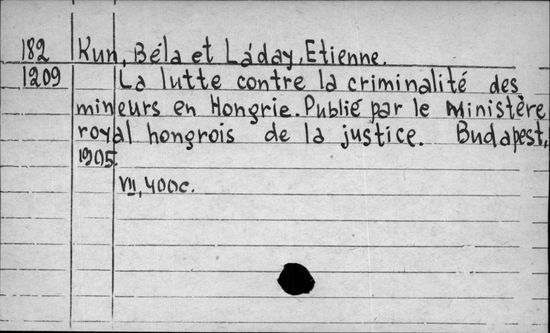 182 Kun, Béla et Láday, Etienne.
1209 La lutte contre la criminalité des
mineurs en Hongrie. Publié par le Ministère
royal hongrois de la justice. Budapest,
1905.
VII, 400c.